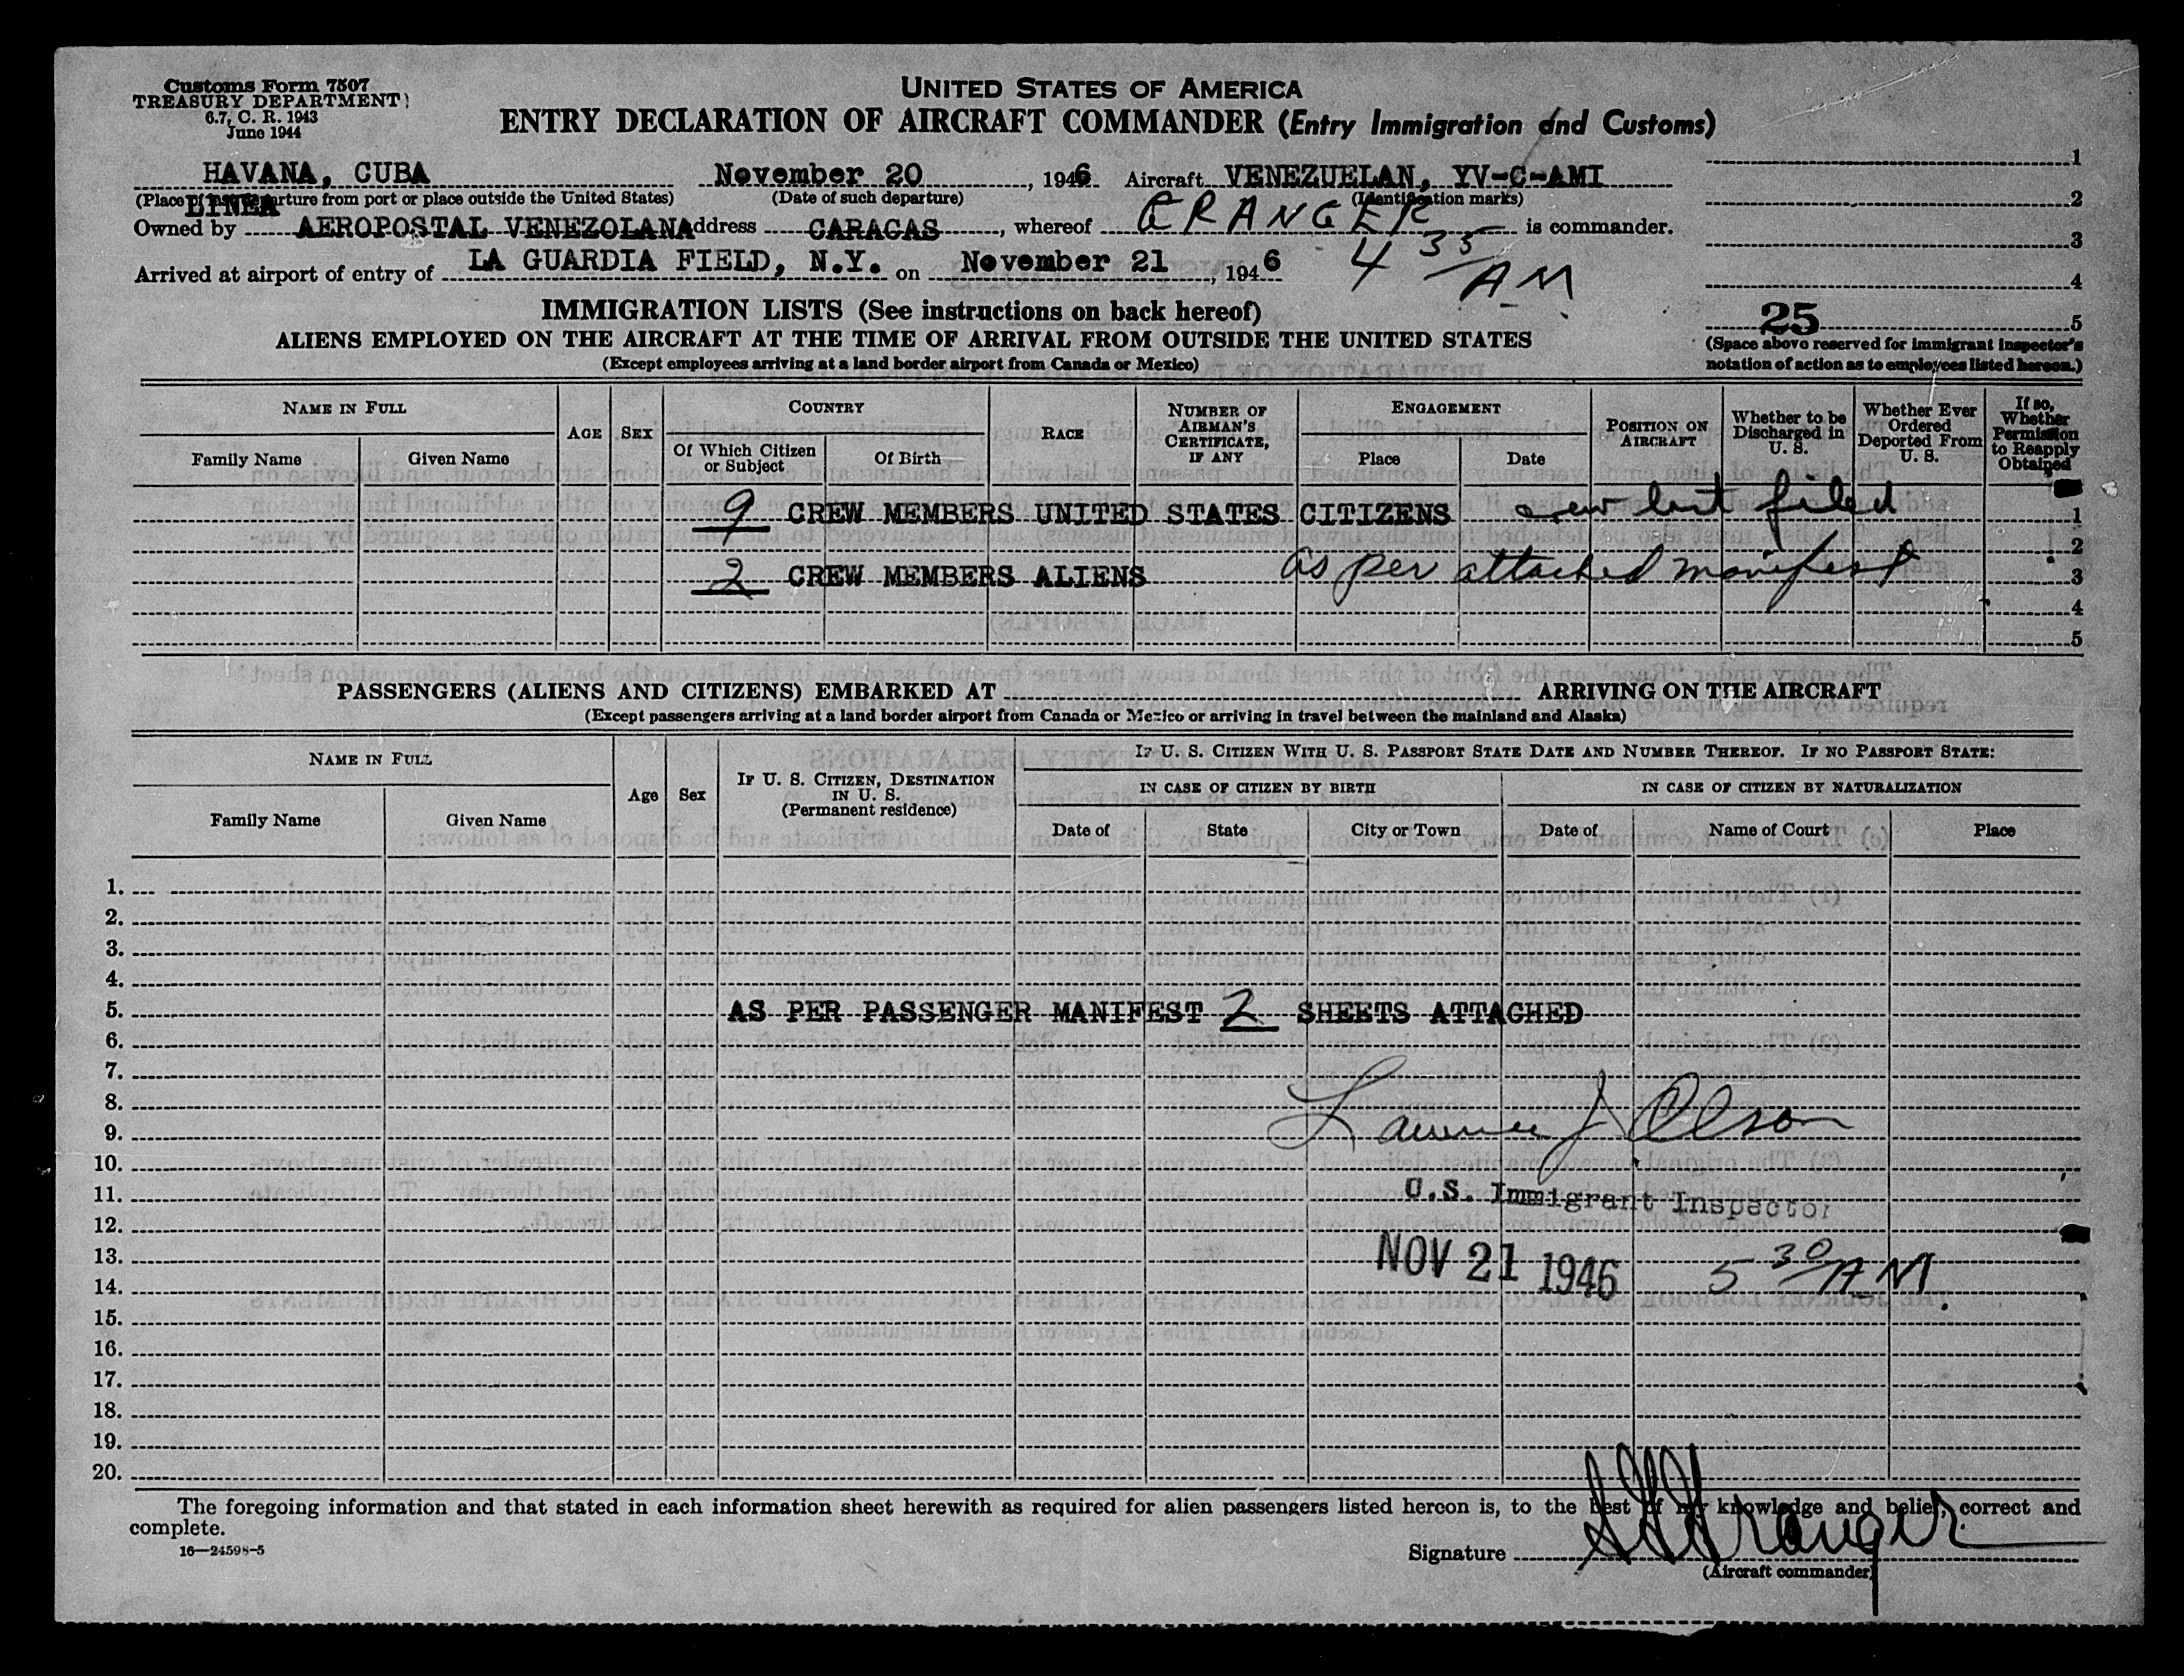 Customs Form 7507
TREASURY DEPARTMENT
6.7, C. R. 1943
June 1944
UNITED STATES OF AMERICA
ENTRY DECLARATION OF AIRCRAFT COMMANDER (Entry Immigration and Customs)
HAVANA, CUBA November 20, 1946 Aircraft VENEZUELAN, YV-C-AMI 1
(Place of last departure from port or place outside the United States) (Date of such departure) (Identification marks) 2
LINEA
Owned by AEROPOSTAL VENEZOLANA Address CARACAS, whereof GRANGER is commander. 3
Arrived at airport of entry of LA GUARDIA FIELD, N.Y. on November 21, 1946 4 35/AM 4
IMMIGRATION LISTS (See instructions on back hereof) 25 5
ALIENS EMPLOYED ON THE AIRCRAFT AT THE TIME OF ARRIVAL FROM OUTSIDE THE UNITED STATES
(Space above reserved for immigrant inspector's
notation of action as to employees listed hereon.)
(Except employees arriving at a land border airport from Canada or Mexico)
NAME IN FULL AGE SEX COUNTRY RACE NUMBER OF AIRMAN'S CERTIFICATE, IF ANY ENGAGEMENT POSITION ON AIRCRAFT Whether to be Discharged in U. S. Whether Ever Ordered Deported From U. S. If so, Whether Permission to Reapply Obtained
Family Name Given Name Of Which Citizen or Subject Of Birth Place Date
9 CREW MEMBERS UNITED STATES CITIZENS crew list filed 1
2
2 CREW MEMBERS ALIENS as per attached manifest 3
4
5
PASSENGERS (ALIENS AND CITIZENS) EMBARKED AT ARRIVING ON THE AIRCRAFT
(Except passengers arriving at a land border airport from Canada or Mexico or arriving in travel between the mainland and Alaska)
NAME IN FULL Age Sex IF U. S. CITIZEN, DESTINATION IN U. S. (Permanent residence) IF U. S. CITIZEN WITH U. S. PASSPORT STATE DATE AND NUMBER THEREOF. IF NO PASSPORT STATE:
IN CASE OF CITIZEN BY BIRTH IN CASE OF CITIZEN BY NATURALIZATION
Family Name Given Name Date of State City or Town Date of Name of Court Place
1.
2.
3.
4.
5. AS PER PASSENGER MANIFEST 2 SHEETS ATTACHED
6.
7.
8.
9. Lawrence J Olson
10.
11. U.S. Immigrant Inspector
12.
13. NOV 21 1946 5 30/AM.
14.
15.
16.
17.
18.
19.
20.
The foregoing information and that stated in each information sheet herewith as required for alien passengers listed hereon is, to the best of my knowledge and belief, correct and
complete.
16—24598-5
Signature Granger
(Aircraft commander)